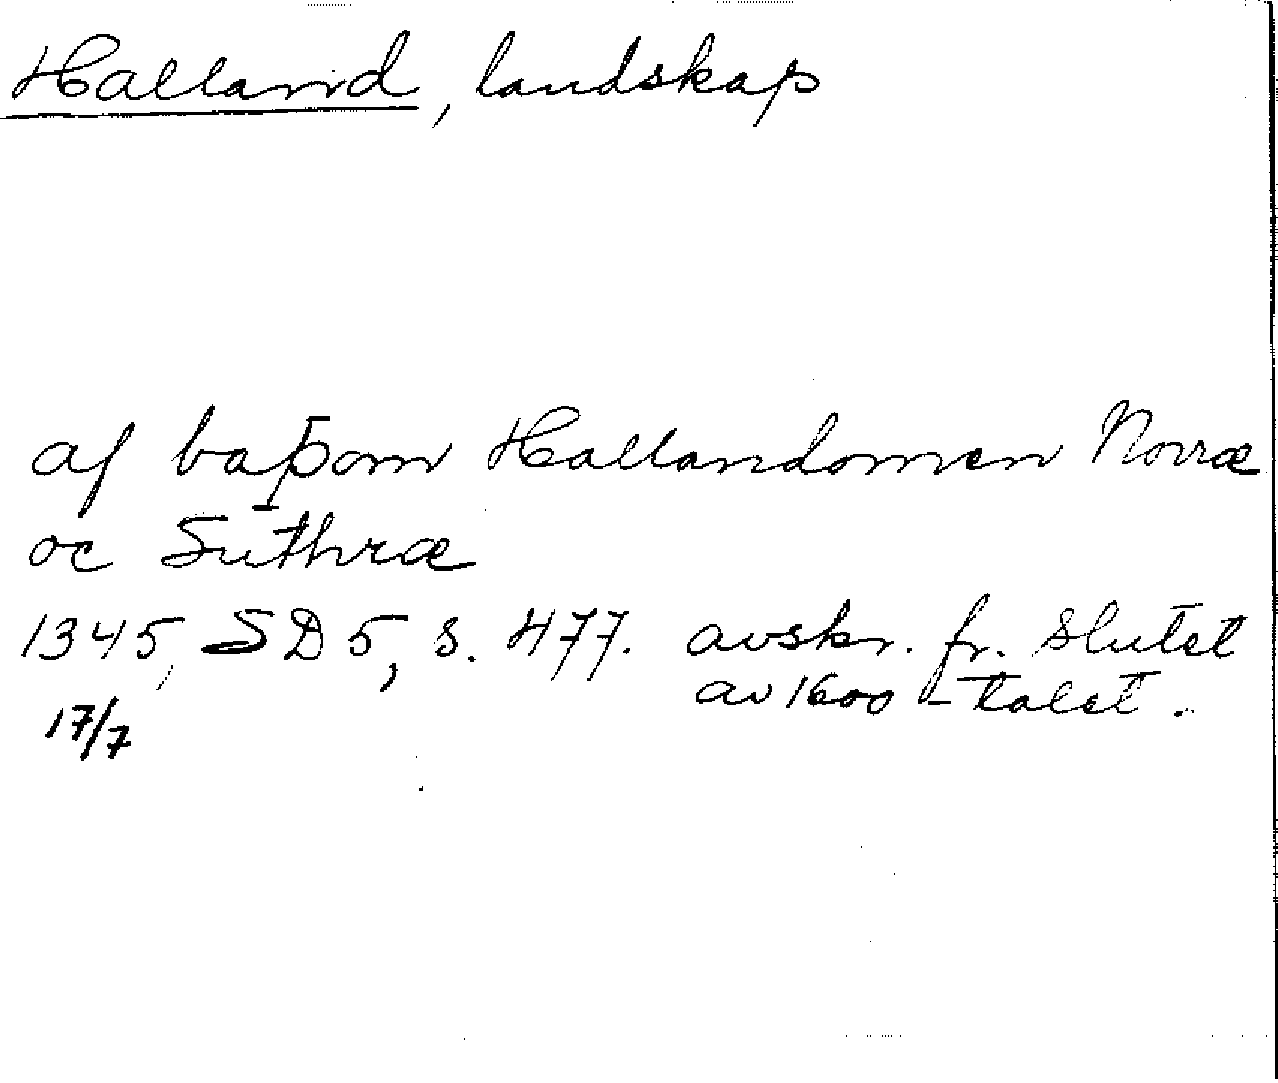 Halland, landskap
af baþom Hallandomen Norræ
oc Suthræ
1345, SD 5, s. 477. avskr. fr. slutet
av 1600-talet.
17/7